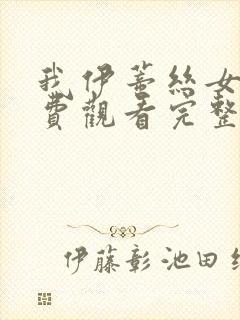 我伊蒂絲女
費觀看完整
伊藤彰池田